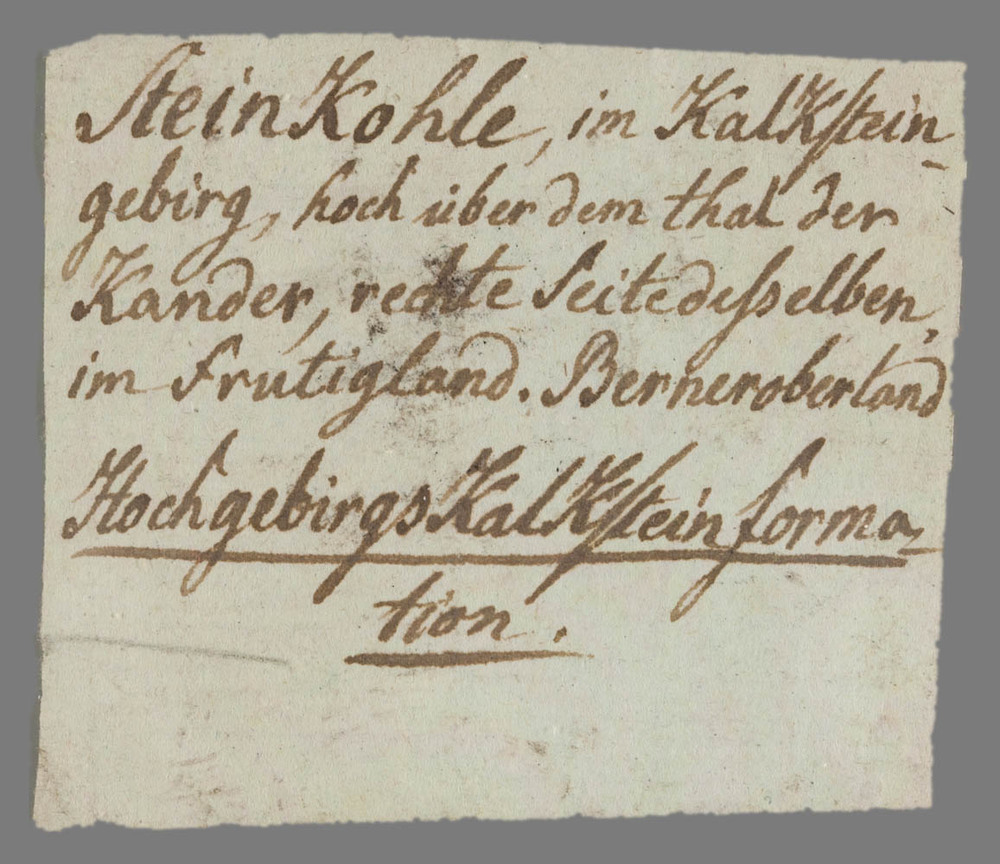 SteinKohle, im KalKstein-
gebirg, hoch über dem thal der
Kander, rechte Seite desselben,
im Frutigland. Berneroberland
HochgebirgsKalKsteinforma-
tion.